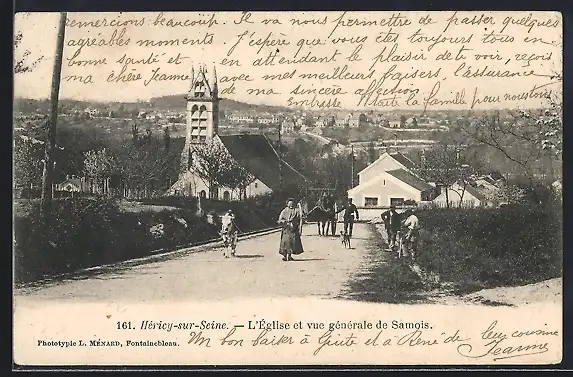 remercions beaucoup. Il va nous permettre de passer quelques
agréables moments. J'espère que vous êtes toujours tous en
bonne santé et en attendant le plaisir de te voir, reçois
ma chère Jeanne avec mes meilleurs baisers, l'assurance
de ma sincère affection.
Embrasse toute la famille pour nous tous
161. Héricy-sur-Seine. — L'Église et vue générale de Samois.
Phototypie L. MÉNARD, Fontainebleau.
Un bon baiser à Ginte et à René de leur cousine
Jeanne